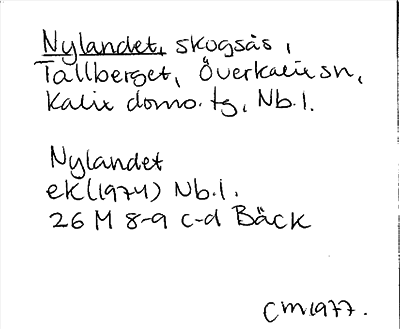 Nylandet, skogsås,
Tallberget, Överkalix sn,
Kalix doms. tg, Nb.l.
Nylandet
ek(1974) Nb.l.
26 M 8-9 c-d Bäck
CM1977.